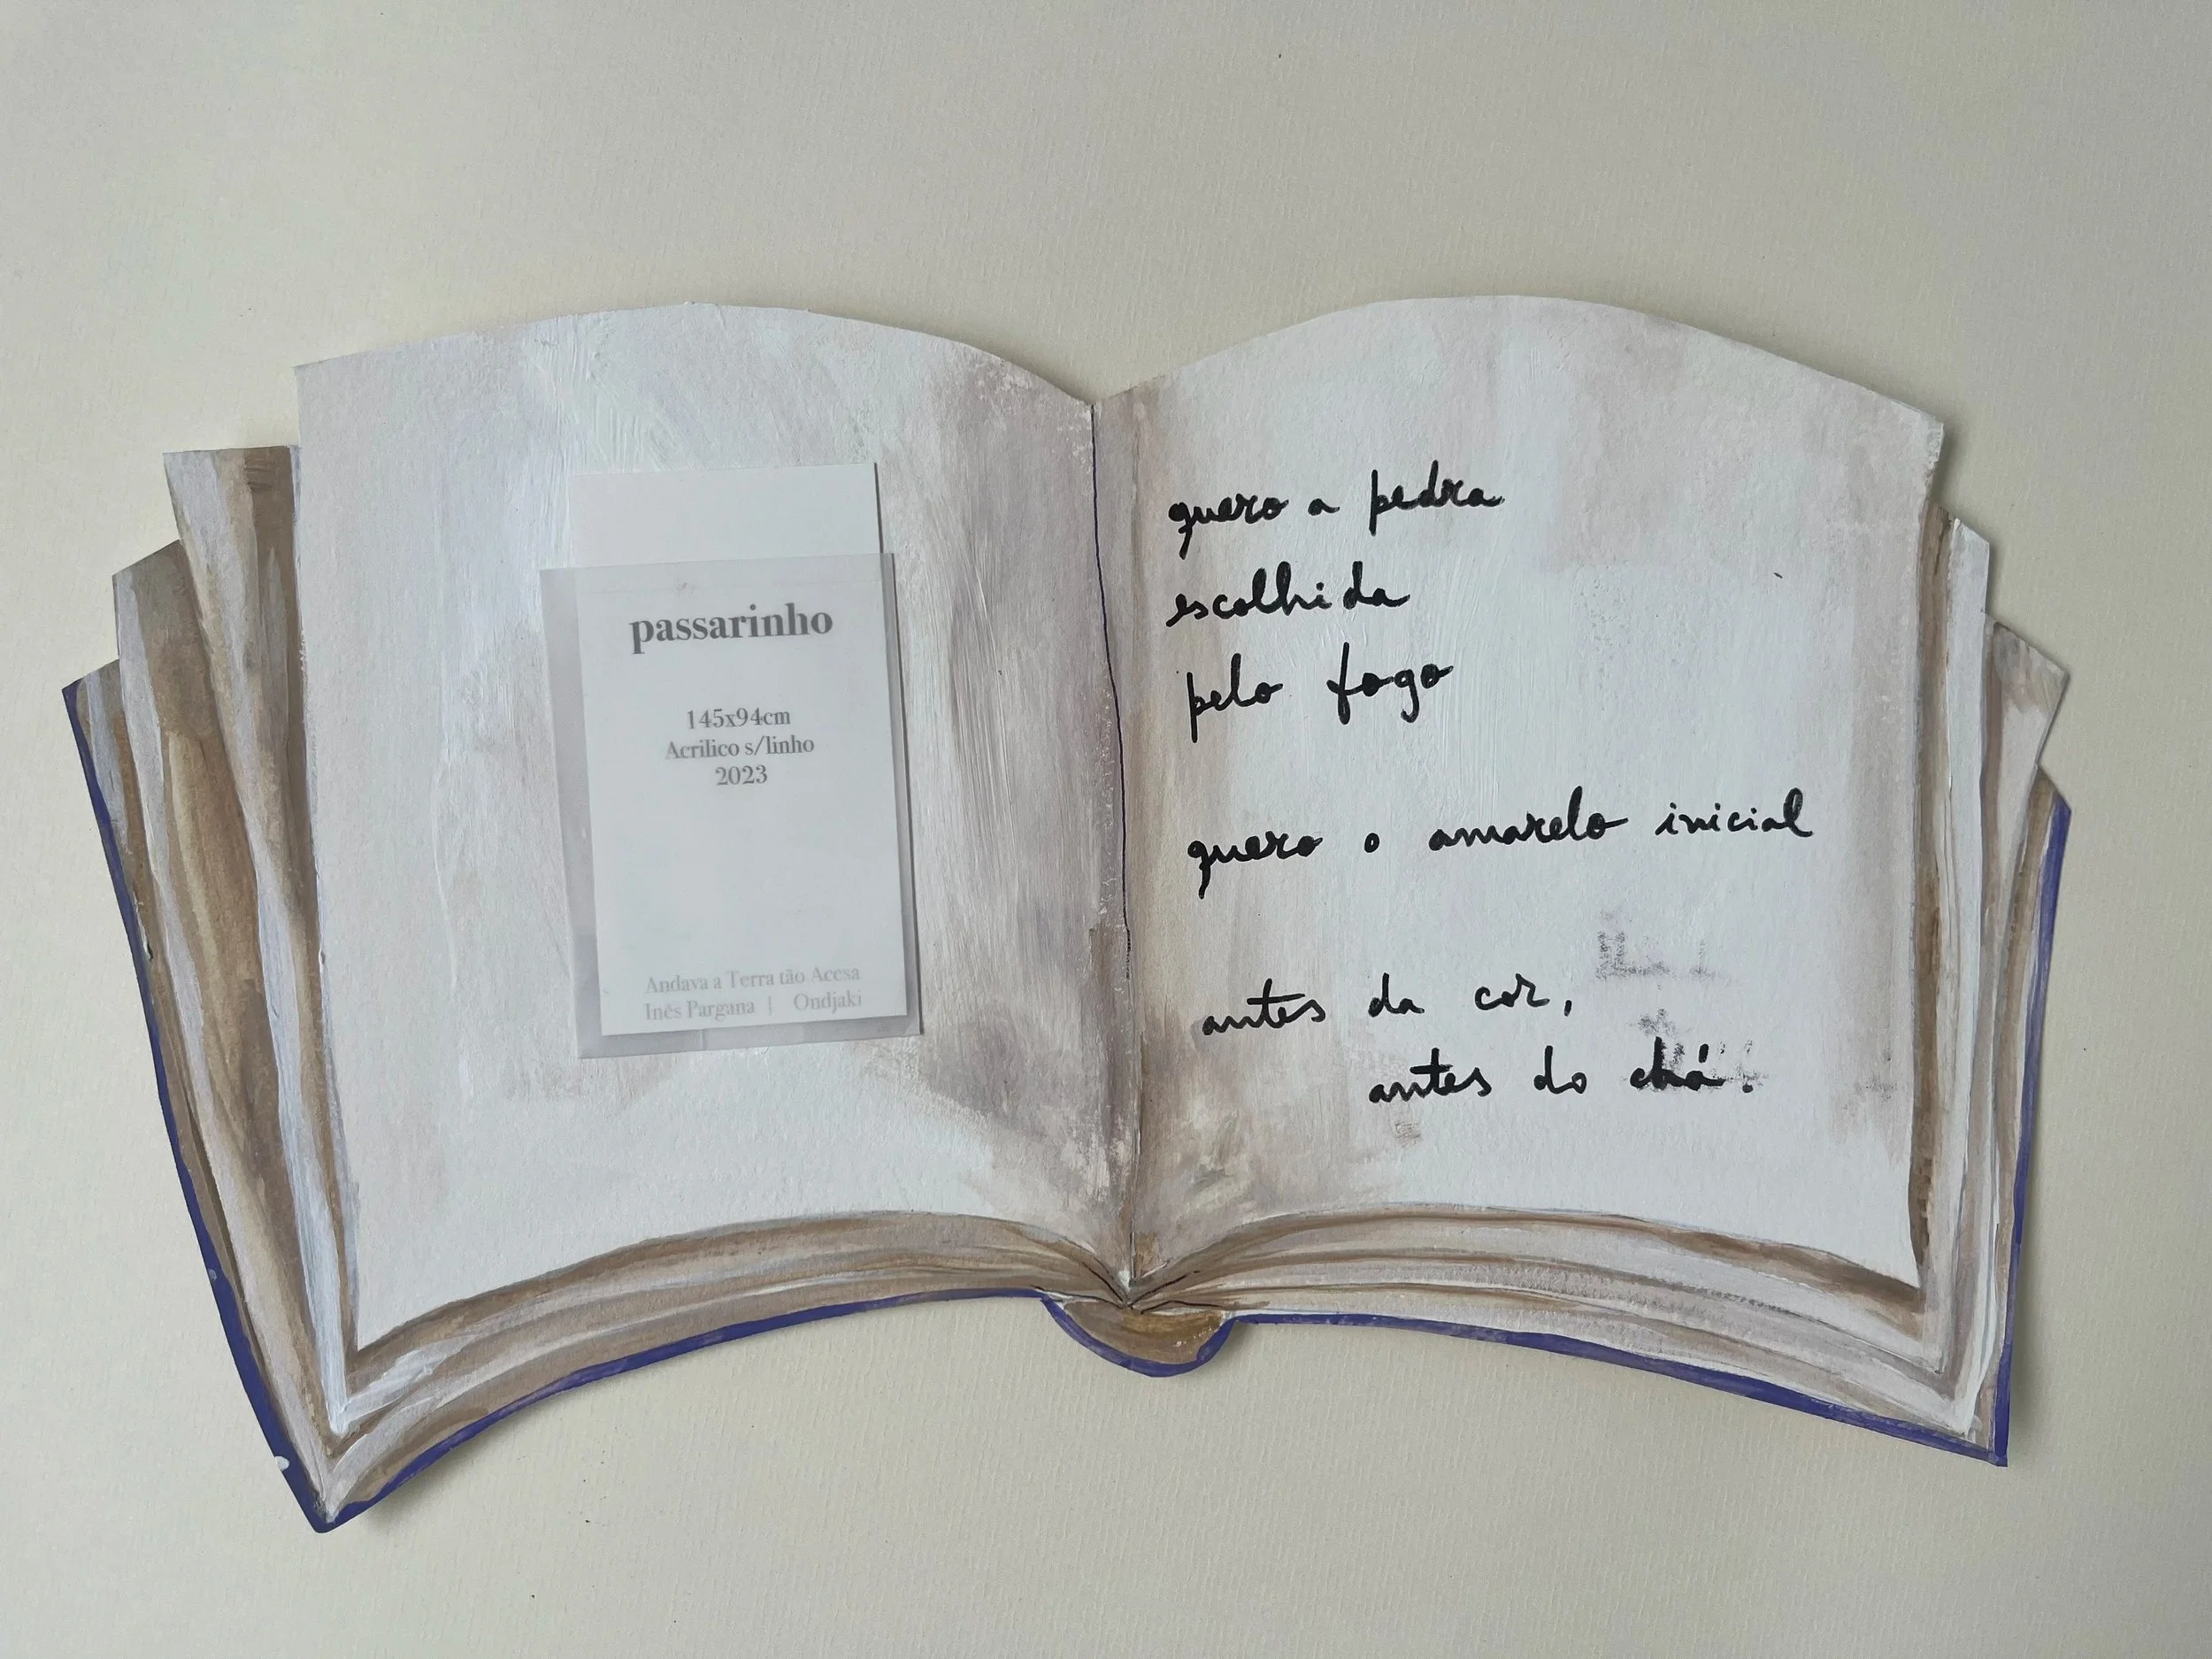 passarinho
145x94cm
Acrilico s/linho
2023
Andava a Terra tão Acesa
Inês Pargana | Ondjaki
quero a pedra
escolhida
pelo fogo
quero o amarelo inicial
antes da cor,
antes do chá.